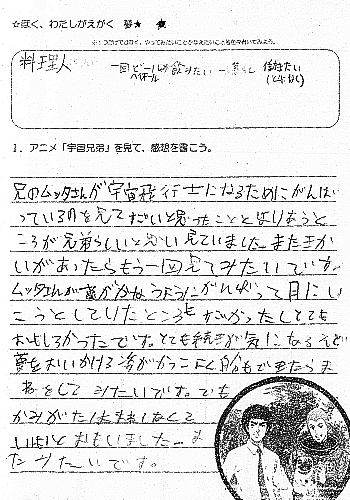 ☆ぼく、わたしがえがく 夢★
※1つだけでなく、やってみたいことやかなえたいこと名を今書いてみよう。
料理人 一回ビールが飲みたい 一人暮らし 信がたい
1. アニメ「宇宙兄弟」を見て、感想を書こう。
兄のムッタさんが宇宙飛行士になるためにがんば
っているのを見てすごいと思ったこととはりあうと
ころが兄弟らしいと思い見ていました。またきか
いがあったらもう一回見てみたいです。
ムッタさんが夢がかなうようにがんばって月にい
こうとしていたところもすごかったしとても
おもしろかったです。とても続きが気になるそして
夢をおいかける姿がかっこよく自分もできたらま
ねをしてみたいです。でも
かみがたはまねしなくて
いいとおもいました。ま
たみたいです。